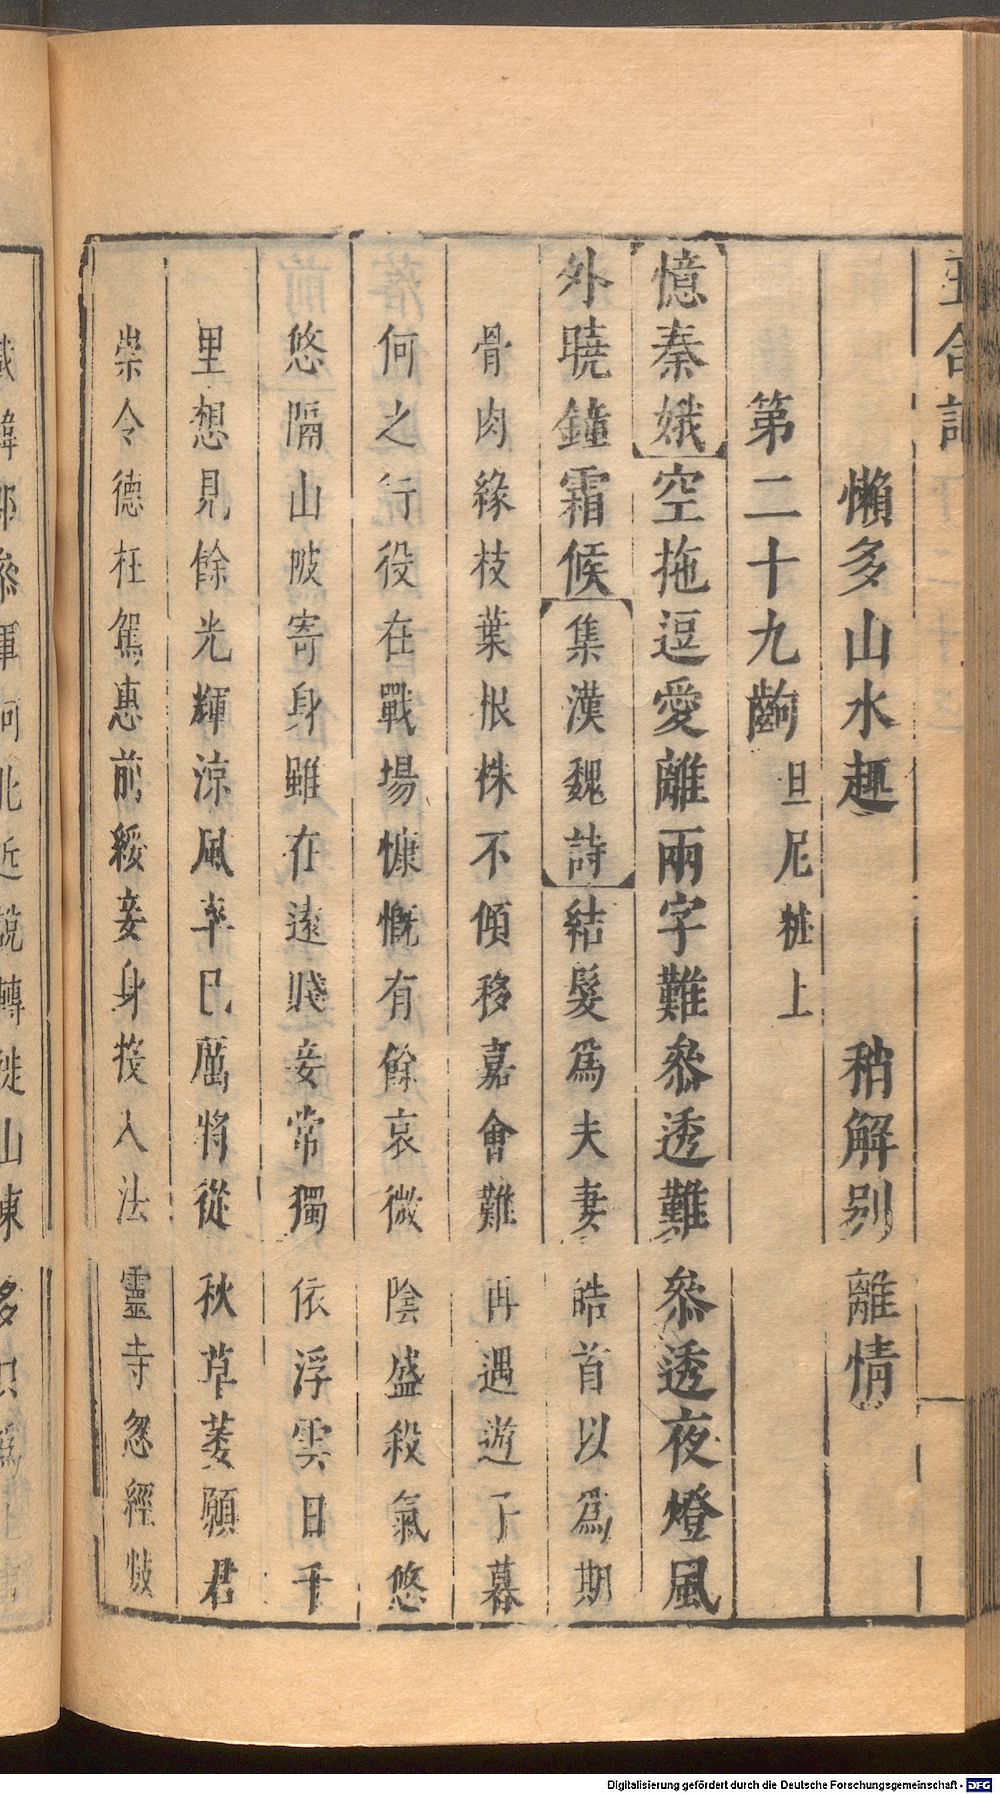 懶多山水趣　稍解别離情
第二十九齣　旦尼粧上
憶秦娥空拖逗愛離兩字難叅透難叅透夜燈風
外曉鐘霜候集漢魏詩結髮爲夫妻皓首以爲期
骨肉緣枝葉根株不傾移嘉會難再遇遊子暮
何之行役在戰場慷慨有餘哀微陰盛殺氣悠
悠隔山陂寄身雖在遠賤妾常獨依浮雲日千
里想見餘光輝涼風率已厲將從秋草萎願君
崇令德枉駕惠前綏妾身投入法靈寺忽經
山東
Digitalisierung gefördert durch die Deutsche Forschungsgemeinschaft - DFG